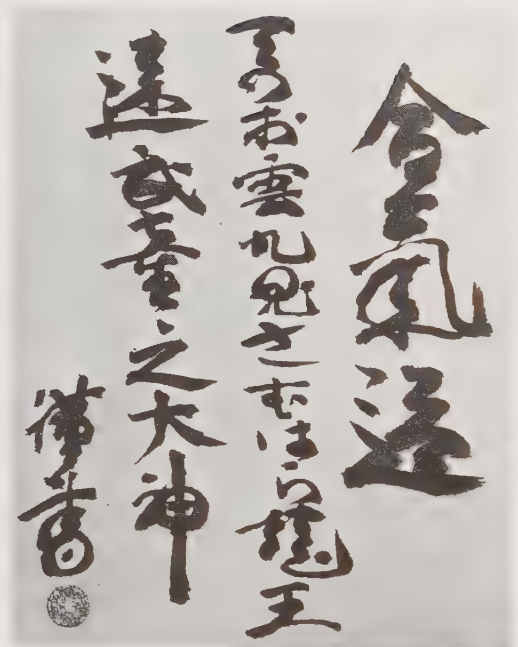 合氣道
天の村雲九鬼さむはら龍王
速武産之大神
謹書